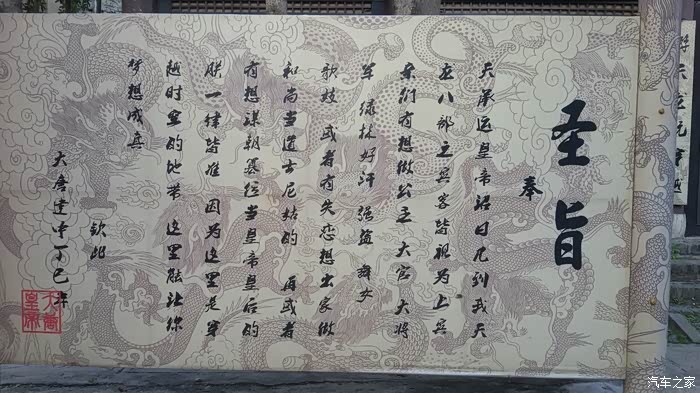 圣旨
奉
天承运皇帝诏曰凡到我天
龙八部之宾客皆视为上宾
亲们有想做公主 大官 大将
军 绿林好汗 强盗 舞女
歌妓 或者有失恋想出家做
和尚当道士尼姑的 再或者
有想谋朝篡位当皇帝皇后的
朕一律皆准 因为这里是穿
越时空的地带 这里能让你
梦想成真
钦此
大唐建中丁巳年
汽车之家